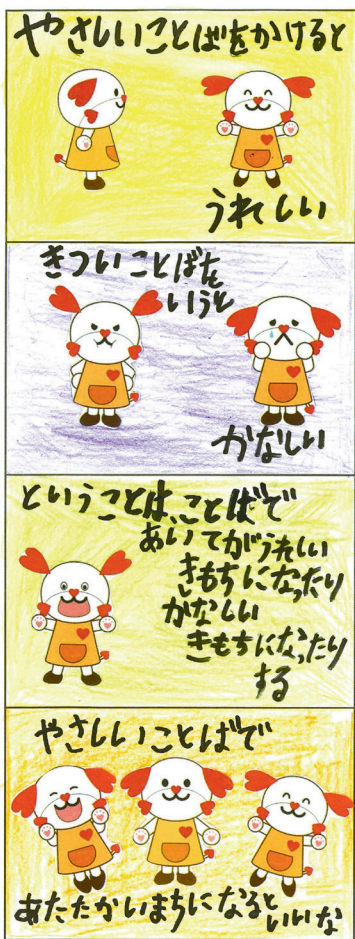 やさしいことばをかけると
うれしい
きついことばを
いうと
かなしい
ということは、ことばで
あいてがうれしい
きもちになったり
かなしい
きもちになったり
する
やさしいことばで
あたたかいまちになると
いいな